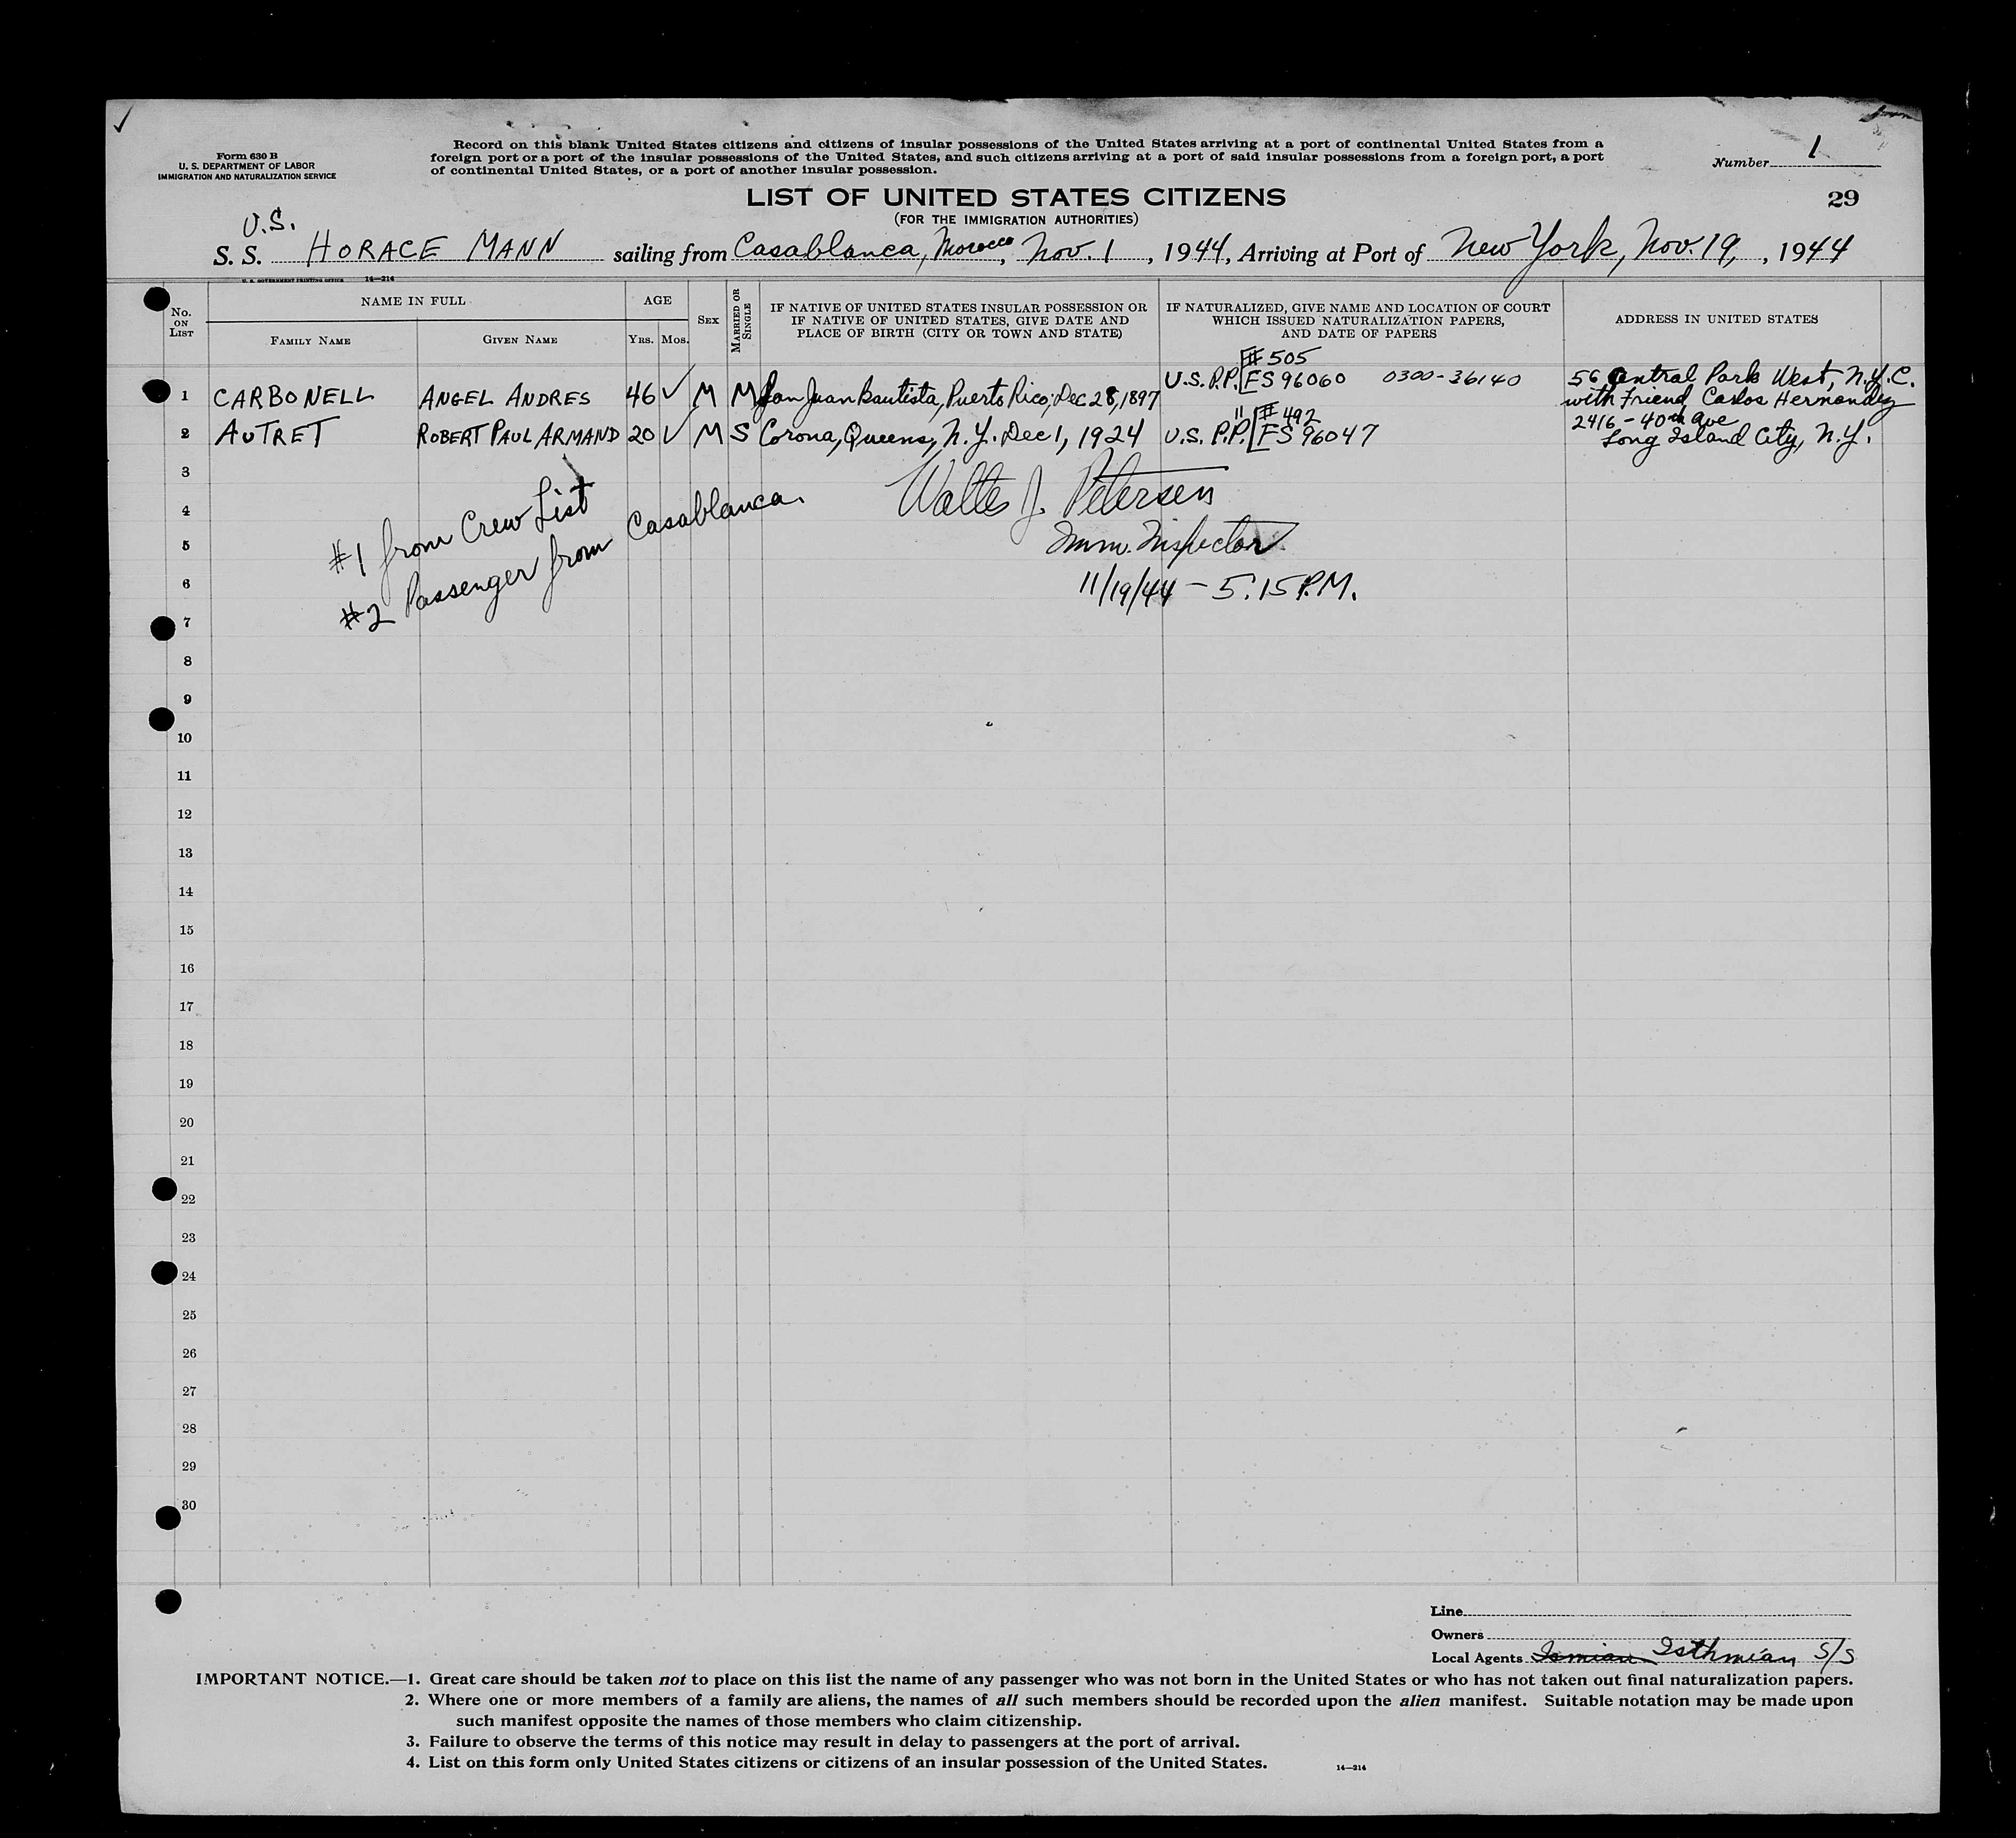 Form 630 B
U. S. DEPARTMENT OF LABOR
IMMIGRATION AND NATURALIZATION SERVICE
Record on this blank United States citizens and citizens of insular possessions of the United States arriving at a port of continental United States from a
foreign port or a port of the insular possessions of the United States, and such citizens arriving at a port of said insular possessions from a foreign port, a port
of continental United States, or a port of another insular possession.
Number 1
LIST OF UNITED STATES CITIZENS
(FOR THE IMMIGRATION AUTHORITIES)
29
U.S.
S. S. HORACE MANN sailing from Casablanca, Morocco, Nov. 1, 1944, Arriving at Port of New York, Nov. 19, , 1944
U. S. GOVERNMENT PRINTING OFFICE 14—214
No. ON LIST
NAME IN FULL
FAMILY NAME
GIVEN NAME
AGE
YRS.
MOS.
SEX
MARRIED OR SINGLE
IF NATIVE OF UNITED STATES INSULAR POSSESSION OR
IF NATIVE OF UNITED STATES, GIVE DATE AND
PLACE OF BIRTH (CITY OR TOWN AND STATE)
IF NATURALIZED, GIVE NAME AND LOCATION OF COURT
WHICH ISSUED NATURALIZATION PAPERS,
AND DATE OF PAPERS
ADDRESS IN UNITED STATES
# 505
1 CARBONELL ANGEL ANDRES 46 ✓ M M San Juan Bautista, Puerto Rico; Dec 28, 1897 U.S. P.P. [FS 96060 0300-36140 56 Central Park West, N.Y.C.
with Friend, Carlos Hernandez
" # 492
2 AUTRET ROBERT PAUL ARMAND 20 ✓ M S Corona, Queens, N.Y. Dec 1, 1924 U.S. P.P. [FS 96047 2416 - 40th Ave
Long Island City, N.Y.
3
4
5
6
7
8
9
10
11
12
13
14
15
16
17
18
19
20
21
22
23
24
25
26
27
28
29
30
#1 from Crew List
#2 Passenger from Casablanca.
Walter J. Petersen
Imm. Inspector
11/19/44 - 5:15 P.M.
Line
Owners
Local Agents Isthmian S/S
IMPORTANT NOTICE.—1. Great care should be taken not to place on this list the name of any passenger who was not born in the United States or who has not taken out final naturalization papers.
2. Where one or more members of a family are aliens, the names of all such members should be recorded upon the alien manifest. Suitable notation may be made upon
such manifest opposite the names of those members who claim citizenship.
3. Failure to observe the terms of this notice may result in delay to passengers at the port of arrival.
4. List on this form only United States citizens or citizens of an insular possession of the United States.
14—214